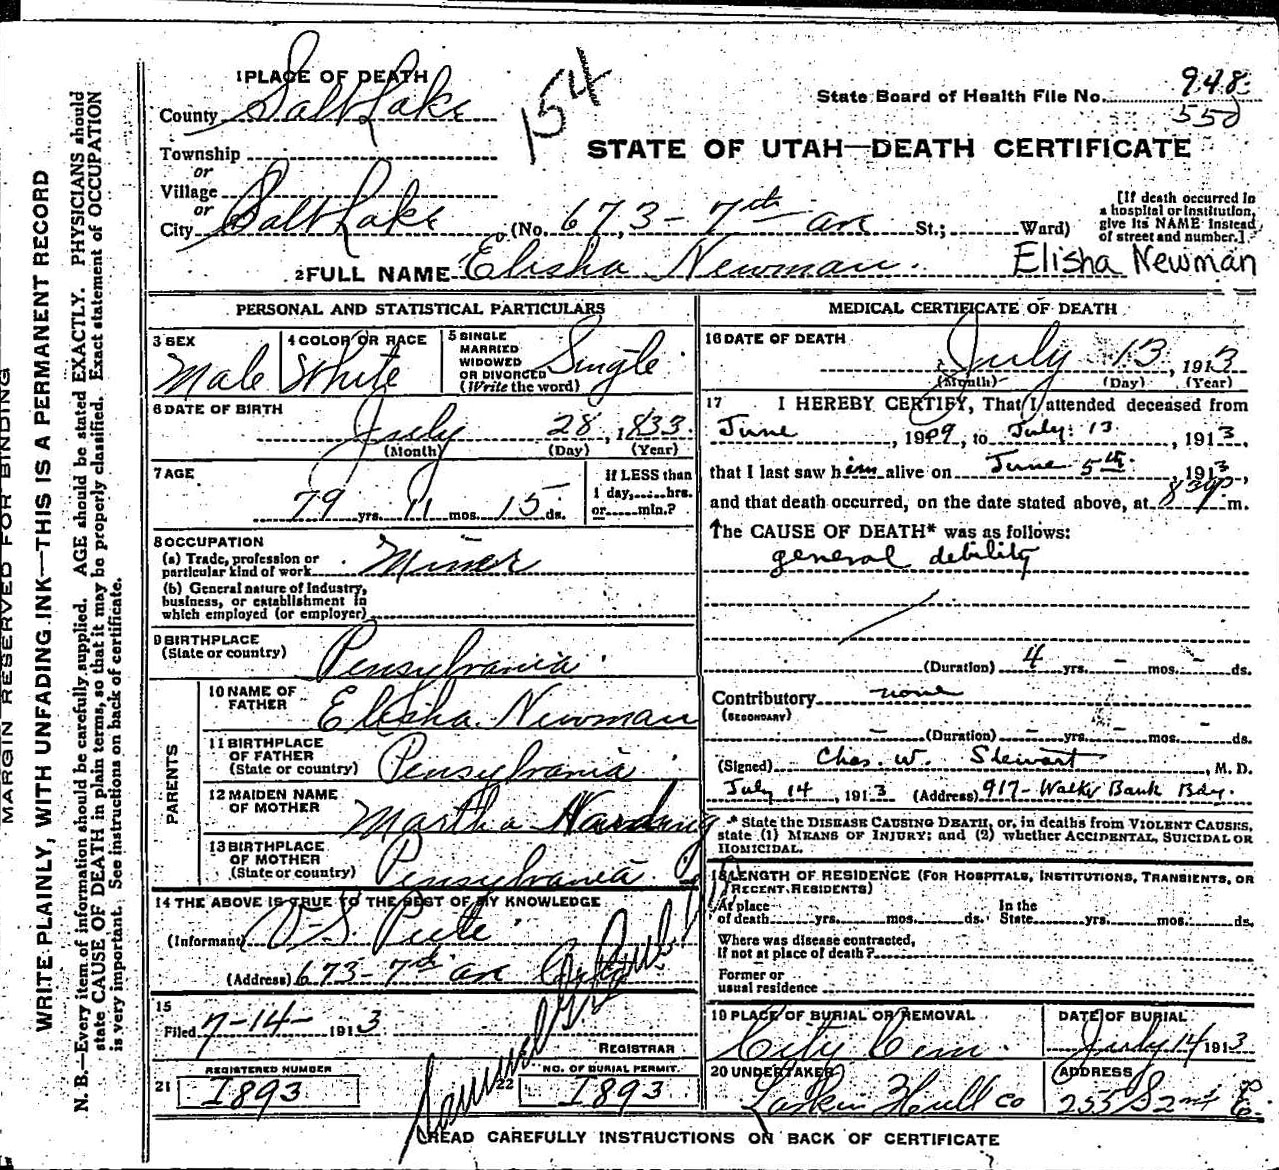 MARGIN RESERVED FOR BINDING
WRITE PLAINLY, WITH UNFADING INK—THIS IS A PERMANENT RECORD
N. B.—Every item of information should be carefully supplied. AGE should be stated EXACTLY. PHYSICIANS should
state CAUSE OF DEATH in plain terms, so that it may be properly classified. Exact statement of OCCUPATION
is very important. See instructions on back of certificate.
1 PLACE OF DEATH
County Salt Lake
Township
or
Village
or
City Salt Lake
154
State Board of Health File No. 948
550
STATE OF UTAH—DEATH CERTIFICATE
(No. 673 - 7th av St.; Ward)
[If death occurred in
a hospital or institution,
give its NAME instead
of street and number.]
2 FULL NAME Elisha Newman. Elisha Newman
PERSONAL AND STATISTICAL PARTICULARS
3 SEX
Male
4 COLOR OR RACE
White
5 SINGLE
MARRIED
WIDOWED
OR DIVORCED
(Write the word)
Single
6 DATE OF BIRTH
July 28, 1833.
(Month) (Day) (Year)
7 AGE
79 yrs. 11 mos. 15 ds.
If LESS than
1 day,......hrs.
or......min.?
8 OCCUPATION
(a) Trade, profession or
particular kind of work Miner
(b) General nature of industry,
business, or establishment in
which employed (or employer)
9 BIRTHPLACE
(State or country)
Pensylvania
10 NAME OF
FATHER
Elisha Newman
11 BIRTHPLACE
OF FATHER
(State or country)
Pensylvania
12 MAIDEN NAME
OF MOTHER
Martha Harding
13 BIRTHPLACE
OF MOTHER
(State or country)
Pensylvania
PARENTS
14 THE ABOVE IS TRUE TO THE BEST OF MY KNOWLEDGE
(Informant) V. S. Peet
(Address) 673 - 7th av
15
Filed 7-14- 1913
REGISTRAR
21
REGISTERED NUMBER
I893
22
NO. OF BURIAL PERMIT.
I893
MEDICAL CERTIFICATE OF DEATH
16 DATE OF DEATH
July 13, 1913
(Month) (Day) (Year)
17 I HEREBY CERTIFY, That I attended deceased from
June, 1909, to July 13, 1913,
that I last saw him alive on June 5th, 1913
and that death occurred, on the date stated above, at 839P m.
The CAUSE OF DEATH* was as follows:
general debility
(Duration) 4 yrs. - mos. - ds.
Contributory none
(SECONDARY)
- (Duration) - yrs. - mos. - ds.
(Signed) Chas. W. Stewart, M. D.
July 14, 1913 (Address) 917 - Walker Bank Bdg.
* State the DISEASE CAUSING DEATH, or, in deaths from VIOLENT CAUSES,
state (1) MEANS OF INJURY; and (2) whether ACCIDENTAL, SUICIDAL OR
HOMICIDAL.
18 LENGTH OF RESIDENCE (FOR HOSPITALS, INSTITUTIONS, TRANSIENTS, OR
RECENT RESIDENTS)
At place
of death......yrs......mos......ds.
In the
State......yrs......mos......ds.
Where was disease contracted,
If not at place of death?
Former or
usual residence
19 PLACE OF BURIAL OR REMOVAL
City Cem.
DATE OF BURIAL
July 14 1913
20 UNDERTAKER
Laskin Hull Co
ADDRESS
255 S 2nd E.
READ CAREFULLY INSTRUCTIONS ON BACK OF CERTIFICATE